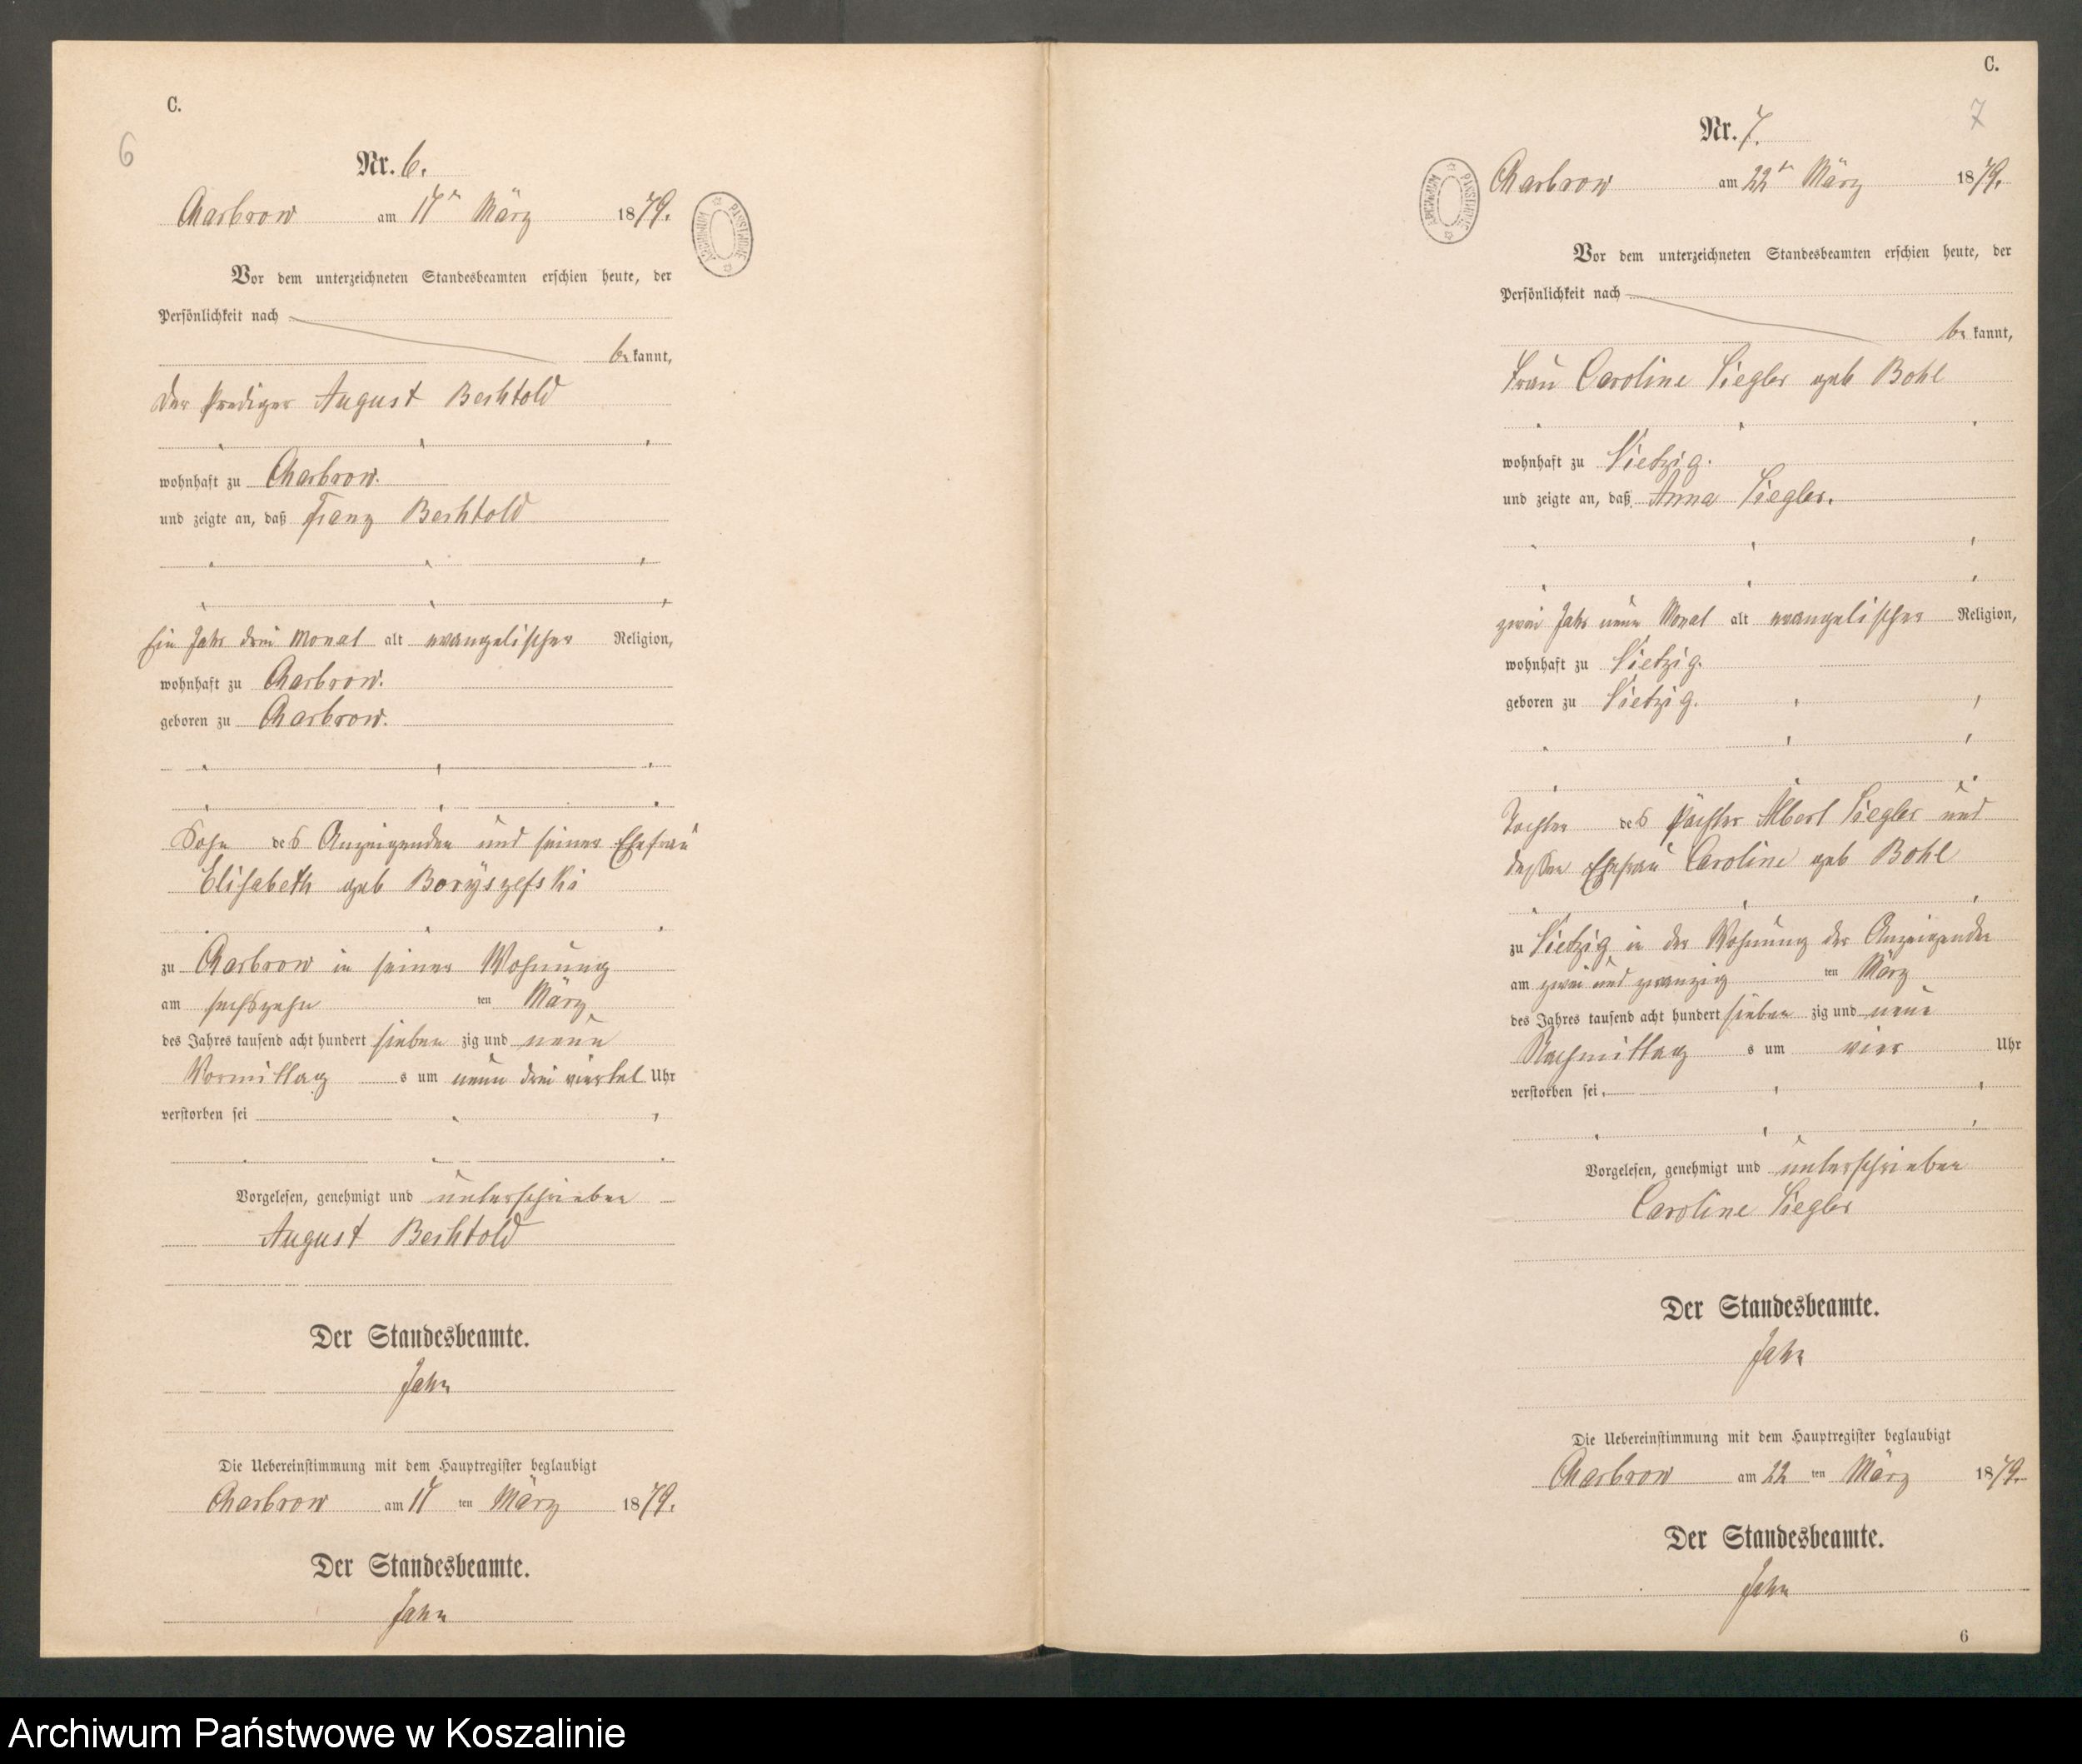 C.
6
Nr. 6.
Charbrow am 17ten März 1879.
ARCHIWUM PAŃSTWOWE
Vor dem unterzeichneten Standesbeamten erschien heute, der
Persönlichkeit nach
be kannt,
der Prediger August Bechtold
wohnhaft zu Charbrow.
und zeigte an, daß Franz Bechtold
Ein Jahr drei Monat alt evangelischer Religion,
wohnhaft zu Charbrow.
geboren zu Charbrow.
Sohn des Anzeigenden und seiner Ehefrau
Elisabeth geb
zu Charbrow in seiner Wohnung
am sechszehn ten März
des Jahres tausend acht hundert sieben zig und neun
Vormittag s um neun drei viertel Uhr
verstorben sei
Vorgelesen, genehmigt und unterschrieben
August Bechtold
Der Standesbeamte.
Jahn
Die Uebereinstimmung mit dem Hauptregister beglaubigt
Charbrow am 17 ten März 1879.
Der Standesbeamte.
Jahn
C.
7
Nr. 7.
Charbrow am 22ten März 1879.
ARCHIWUM PAŃSTWOWE
Vor dem unterzeichneten Standesbeamten erschien heute, der
Persönlichkeit nach
be kannt,
Frau Caroline Ziegler geb Bohl
wohnhaft zu Vietzig.
und zeigte an, daß Anna Ziegler.
zwei Jahr neun Monat alt evangelischer Religion,
wohnhaft zu Vietzig.
geboren zu Vietzig.
Tochter des Pächter Albert Ziegler und
dessen Ehefrau Caroline geb Bohl
zu Vietzig in der Wohnung der Anzeigender
am zwei und zwanzig ten März
des Jahres tausend acht hundert sieben zig und neun
Nachmittag s um vier Uhr
verstorben sei
Vorgelesen, genehmigt und unterschrieben
Caroline Ziegler
Der Standesbeamte.
Jahn
Die Uebereinstimmung mit dem Hauptregister beglaubigt
Charbrow am 22 ten März 1879.
Der Standesbeamte.
Jahn
6
Archiwum Państwowe w Koszalinie